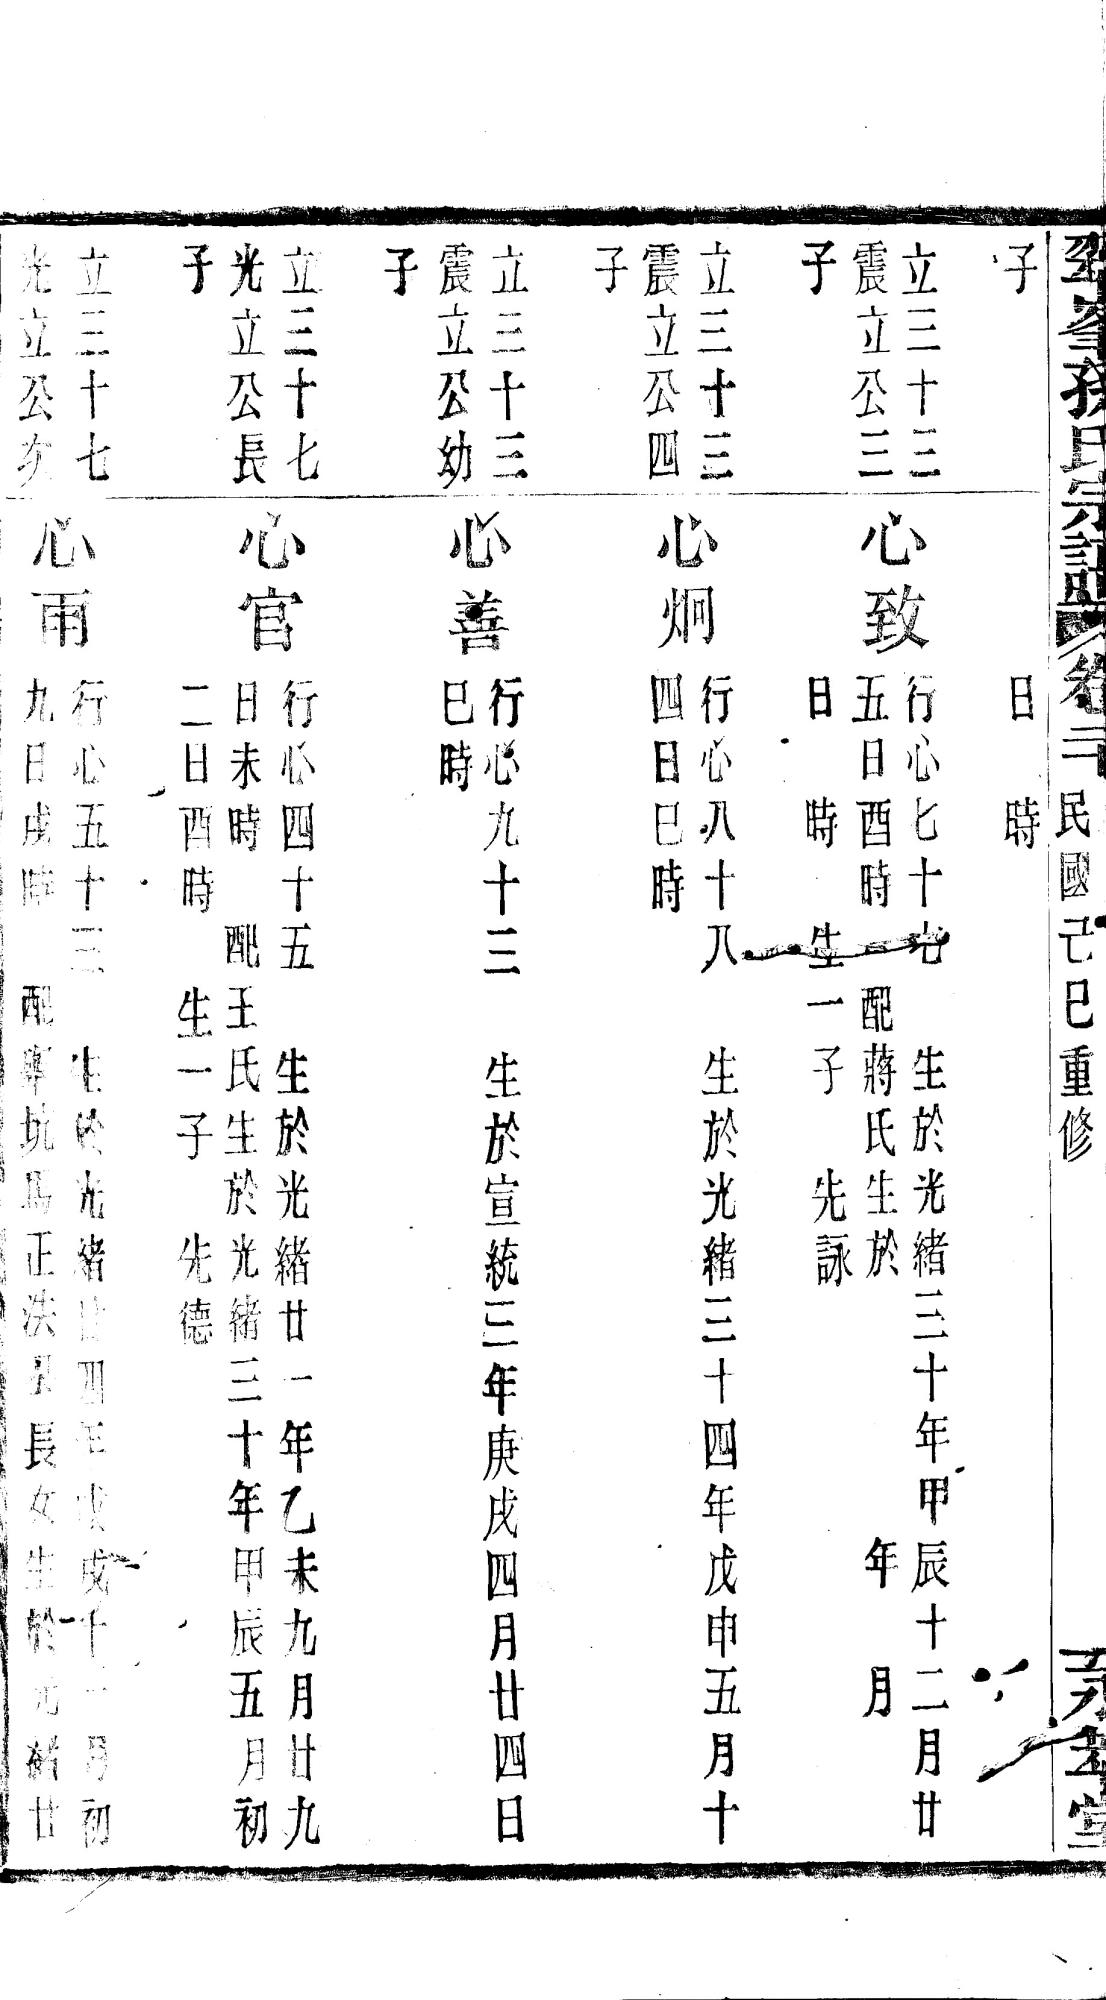 孫氏宗譜 卷二 民國己巳重修
子 日 時
立三十三
震立公三
子
心致
行心七十七 生於光緒三十年甲辰十二月廿
五日酉時 配蔣氏生於 年 月
日 時 生一子 先詠
立三十三
震立公四
子
心炯
行心八十八 生於光緒三十四年戊申五月十
四日巳時
立三十三
震立公幼
子
心善
行心九十三 生於宣統二年庚戌四月廿四日
巳時
立三十七
光立公長
子
心官
行心四十五 生於光緒廿一年乙未九月廿九
日未時 配王氏生於光緒三十年甲辰五月初
二日酉時 生一子 先德
立三十七
光立公次
心雨
行心五十三 生於光緒廿四年戊戌十一月初
九日戌時 配 坑馬正洪 長女生於光緒廿